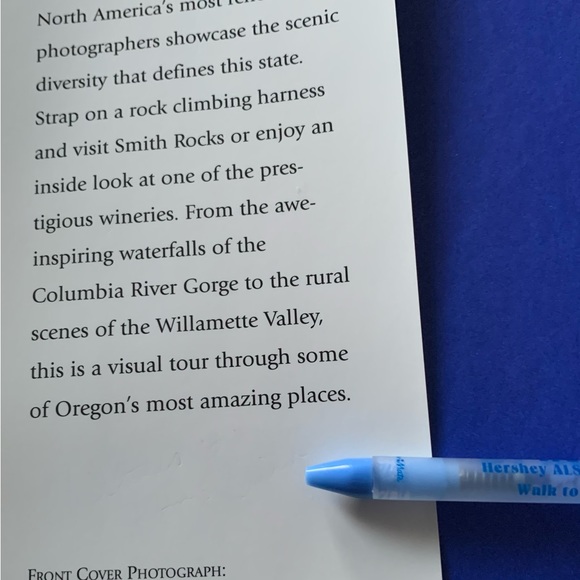 North America's most
photographers showcase the scenic
diversity that defines this state.
Strap on a rock climbing harness
and visit Smith Rocks or enjoy an
inside look at one of the pres-
tigious wineries. From the awe-
inspiring waterfalls of the
Columbia River Gorge to the rural
scenes of the Willamette Valley,
this is a visual tour through some
of Oregon's most amazing places.
Hershey ALS
Walk to
FRONT COVER PHOTOGRAPH: